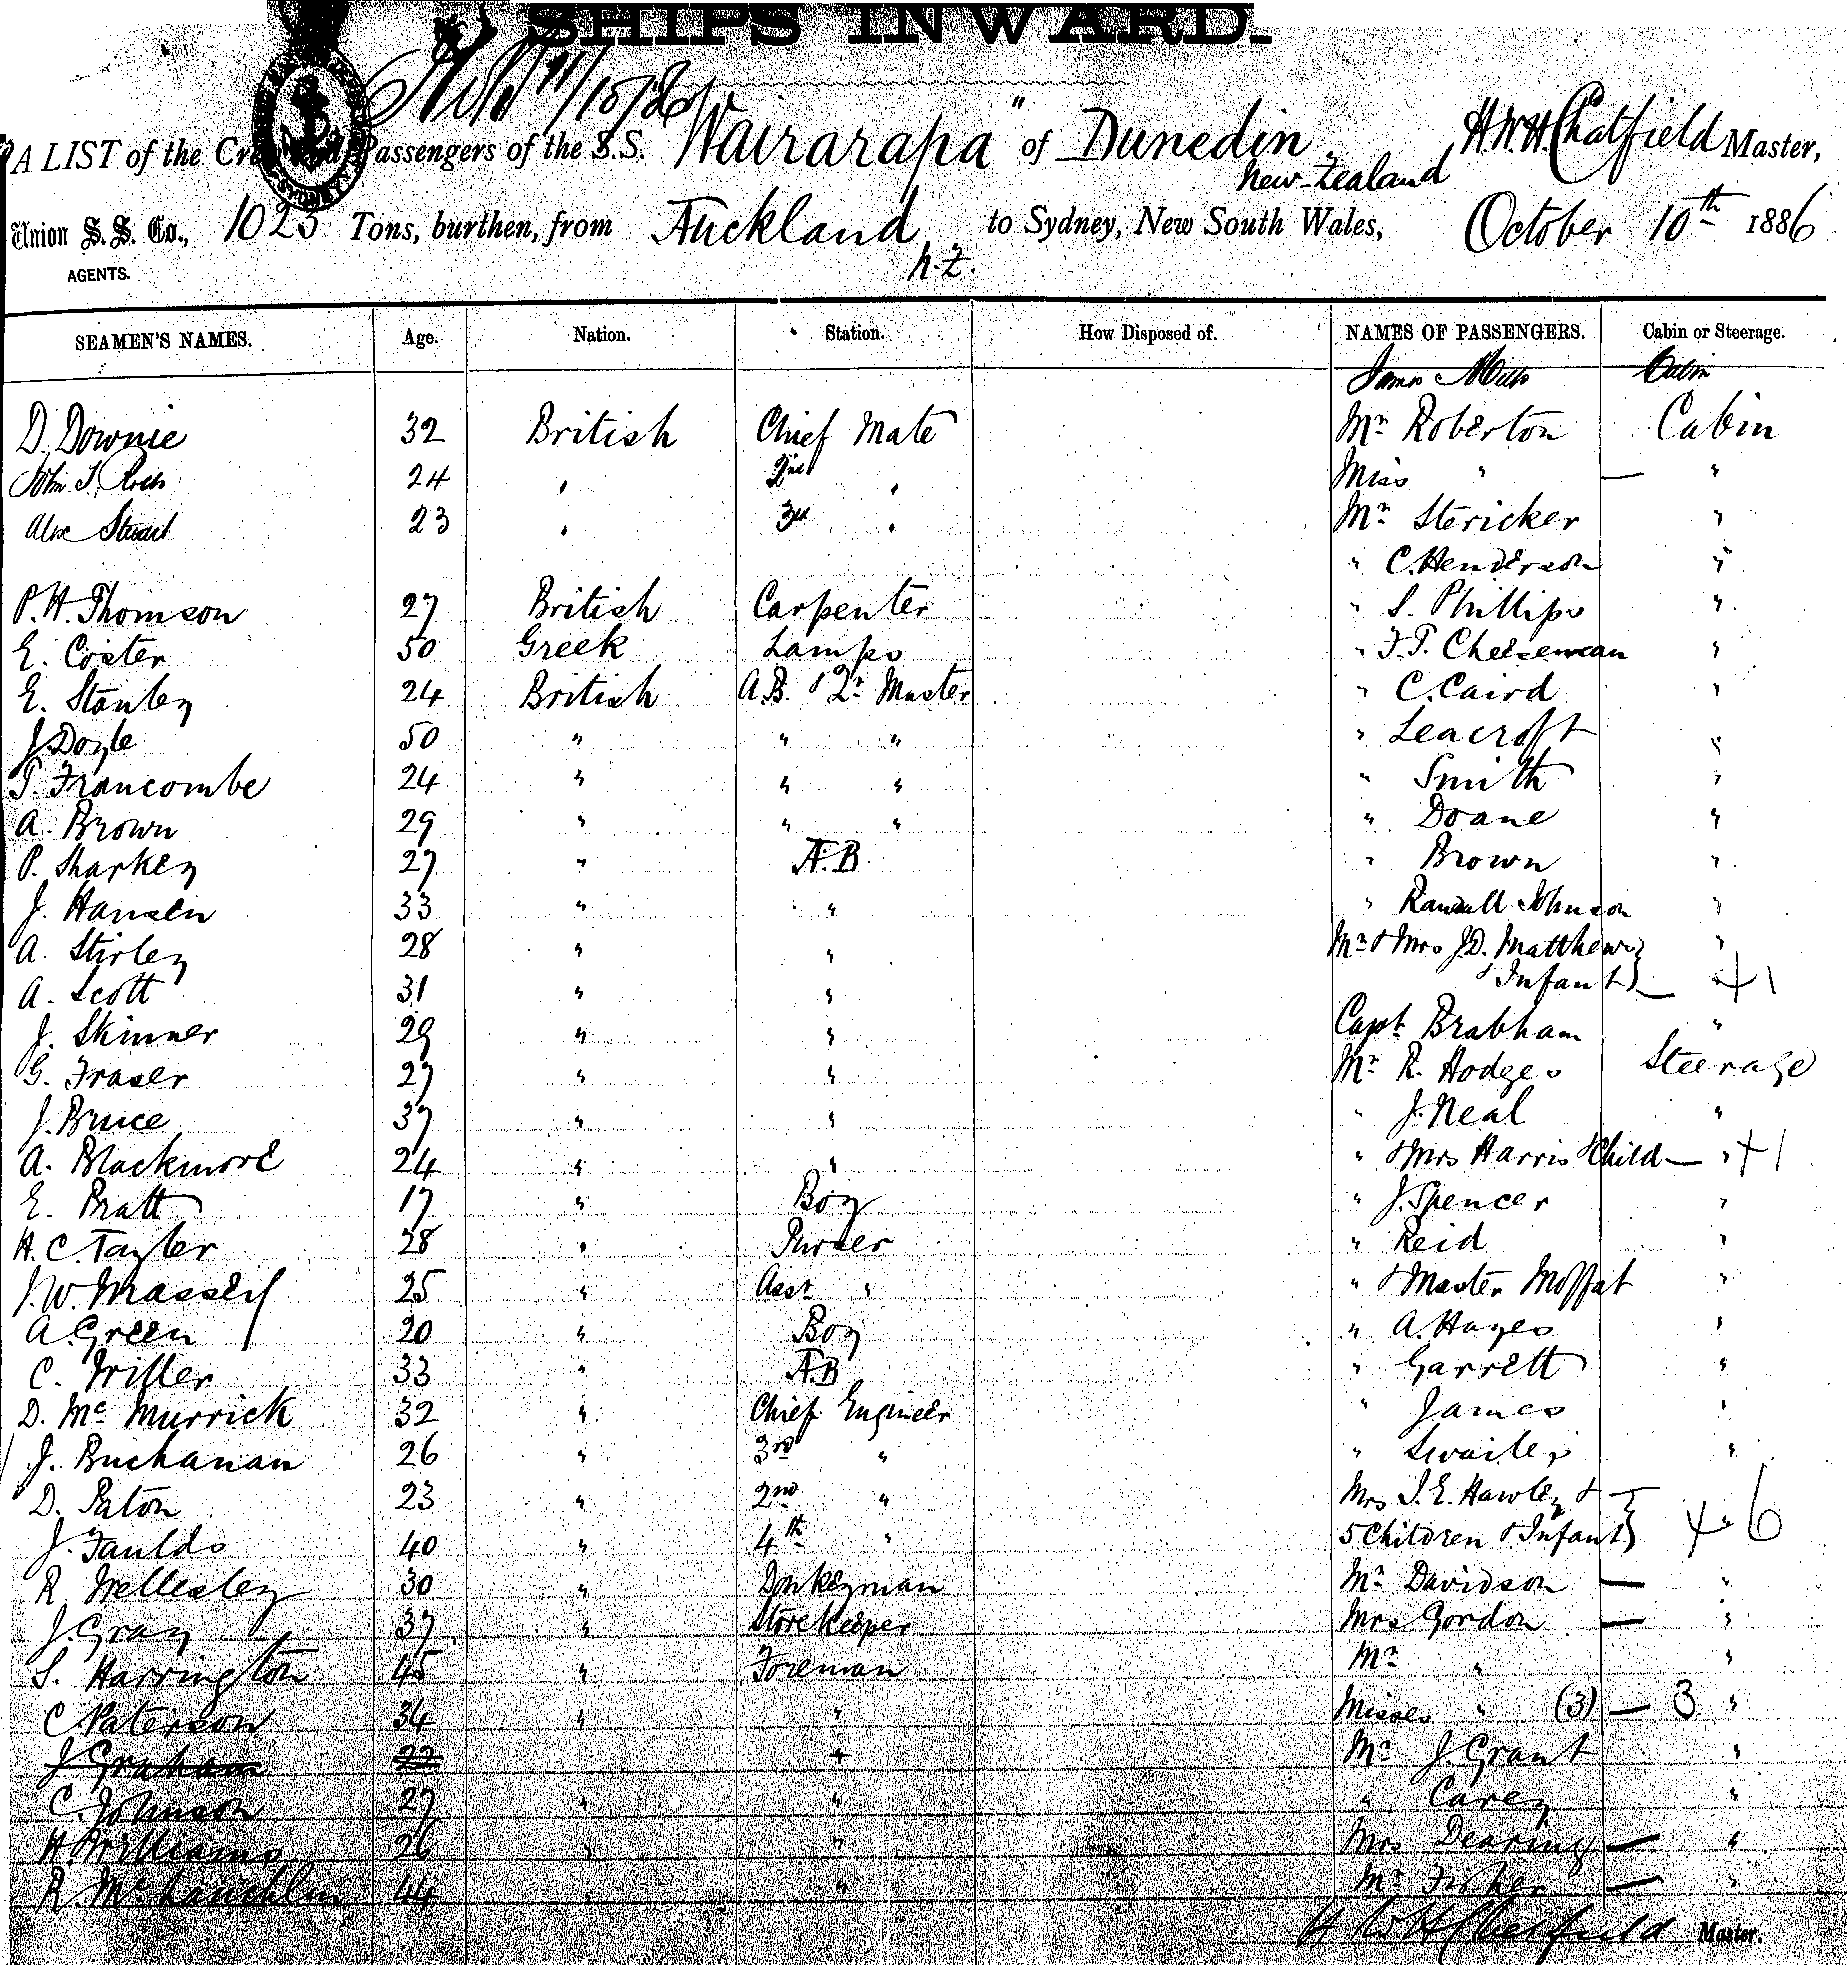 SHIPS INWARD.
A LIST of the Crew and Passengers of the S.S. "Wairarapa" of Dunedin, New Zealand H.W.H. Chatfield Master,
Union S. S. Co., 1023 Tons, burthen, from Auckland N.Z. to Sydney, New South Wales, October 10th 1886
AGENTS.
SEAMEN'S NAMES. Age. Nation. Station. How Disposed of. NAMES OF PASSENGERS. Cabin or Steerage.
James Mills Cabin
D. Downie 32 British Chief Mate Mr Roberton Cabin
John T. 24 " 2nd " Miss " — "
Alex Stuart 23 " 3rd " Mr Stericker "
" C. Henderson "
P. H. Thomson 27 British Carpenter " S. Phillips "
E. Coster 50 Greek Lamps " F. T. Cheeseman "
E. Stanley 24 British A.B. & Qr Master " C. Caird "
J. Doyle 50 " " " " Leacroft "
T. Francombe 24 " " " " Smith "
A. Brown 29 " " " " Doane "
P. Sharkey 27 " A.B. " Brown "
J. Hansen 33 " " " Randall Johnson "
A. Stirley 28 " " Mr & Mrs J.D. Matthews }
A. Scott 31 " " & Infant } — " +1
J. Skinner 29 " " Capt Brabham "
G. Fraser 27 " " Mr R. Hodges Steerage
J. Bruce 37 " " " J. Neal "
A. Blackmore 24 " " " & Mrs Harris & Child — " +1
E. Pratt 17 " Boy " J. Spencer "
H. C. Tayler 28 " Purser " Reid "
J. W. Massey 25 " Asst " " & Master Moffat "
A. Green 20 " Boy " A. Hayes "
C. Miller 33 " A.B " Garrett "
D. Mc Murrick 32 " Chief Engineer " James "
J. Buchanan 26 " 3rd " " Swailes "
D. Paton 23 " 2nd " Mrs J. E. Hawley & —
J. Faulds 40 " 4th " 5 Children & Infant } + " 6
R. Wellesley 30 " Donkeyman Mr Davidson — "
J. Gray 37 " Storekeeper Mrs Gordon — "
S. Harrington 45 " Foreman Mr " "
C. Paterson 34 " " Misses " (3) — 3 "
J. Graham 22 " Mr J. Grant "
C. Johnson 27 " " " Carey "
H. Williams 26 " " Mrs Dearing — "
R. McLauchlin 44 " " Mr Fisher — "
H W H Chatfield Master.